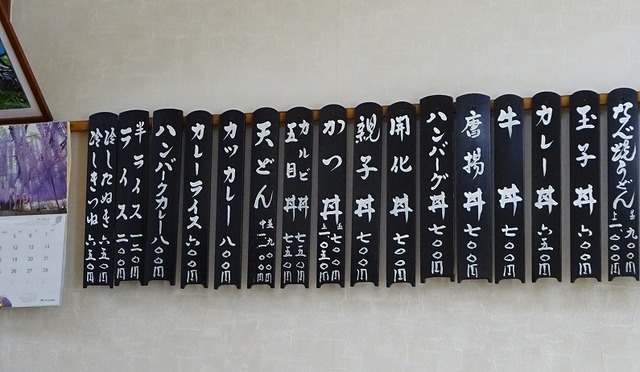 なべ焼うどん
並 九〇〇円
玉子丼 六〇〇円
カレー丼 六五〇円
牛丼 七〇〇円
唐揚丼 七〇〇円
ハンバーグ丼 七〇〇円
開化丼 七〇〇円
親子丼 七〇〇円
かつ丼
並 七〇〇円
上 一〇五〇円
カルビ丼 七五〇円
五目丼 七五〇円
天どん
カツカレー 八〇〇円
カレーライス 六〇〇円
ハンバークカレー 八〇〇円
半ライス 一二〇円
ライス 二〇〇円
冷したぬき 六五〇円
冷しきつね 六五〇円